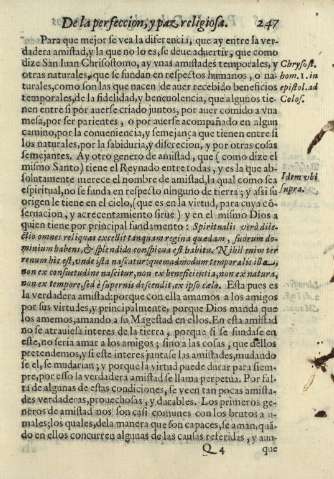 De la perfeccion, y paz religiosa. 247
Para que mejor se vea la diferencia, que ay entre la ver-
dadera amistad, y la que no lo es, se deue aduertir, que como
dize San Iuan Chrisostomo, ay vnas amistades temporales, y
otras naturales, que se fundan en respectos humanos, o na-
turales, como son las que nacen de auer recebido beneficios
temporales, de la fidelidad, y beneuolencia, que algunos tie-
nen entre si por auerse criado juntos, por auer comido a vna
mesa, por ser parientes, o por auerse acompañado en algun
camino, por la conueniencia, y semejança que tienen entre si
los naturales, por la sabiduria, y discrecion, y por otras cosas
semejantes. Ay otro genero de amistad, que (como dize el
mismo Santo) tiene el Reynado entre todas, y es la que ab-
solutamente merece el nombre de amistad, la qual como sea
espiritual, no se funda en respecto ninguno de tierra; y assi su
origen le tiene en el cielo, (que es en la virtud, para cuya cō-
seruacion, y acrecentamiento sirue) y en el mismo Dios a
quien tiene por principal fundamento: Spiritualis verò dile-
ctio omnes reliquas excellit tanquam regina quædam, suorum do-
minium habens, & splendido conspicua est habitu. Nihil enim ter
renum hic est, vnde ista nascatur quemadmodum temporalis illa,
non ex consuetudine nascitur, non ex beneficentia, non ex natura,
non ex tempore, sed è supernis descendit, ex ipso cælo. Esta pues es
la verdadera amistad; porque con ella amamos a los amigos
por sus virtudes, y principalmente, porque Dios manda que
los amemos, amando a su Magestad en ellos. En esta amistad
no se atrauiesa interes de la tierra, porque si se fundase en
este, no seria amar a los amigos; sino a las cosas, que dellos
pretendemos, y si este interes juntase las amistades, mudando
se el, se mudarian; y porque la virtud puede durar para siem-
pre, por esso la verdadera amistad se llama perpetua. Por fal-
ta de algunas de estas condiciones, se veen tan pocas amista-
des verdaderas, prouechosas, y durables. Los primeros ge-
neros de amistad nos son casi comunes con los brutos a ni-
males; los quales, de la manera que son capaces, se aman, quā-
do en ellos concurren algunas de las causas referidas, y aun-
Q 4 que
Chrysost.
hom. 1. in
epist. ad
Colos.
Idem vbi
supra.